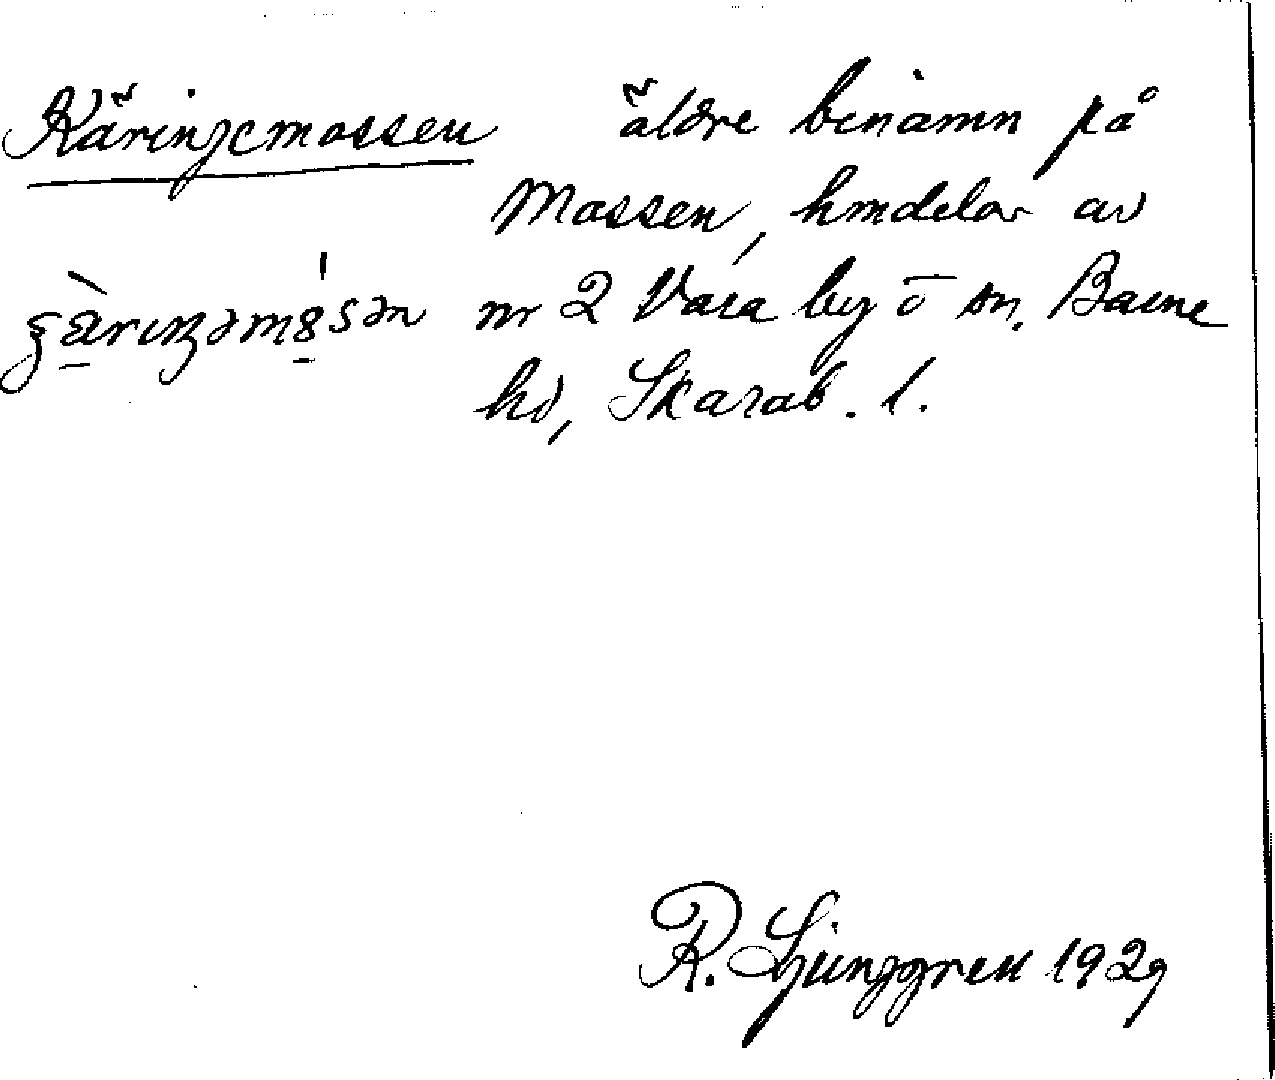 Käringemossen äldre benämn på
Mossen, hmdelar av
nr 2 Vara by o sn. Barne
hd, Skarab. l.
R. Ljunggren 1929